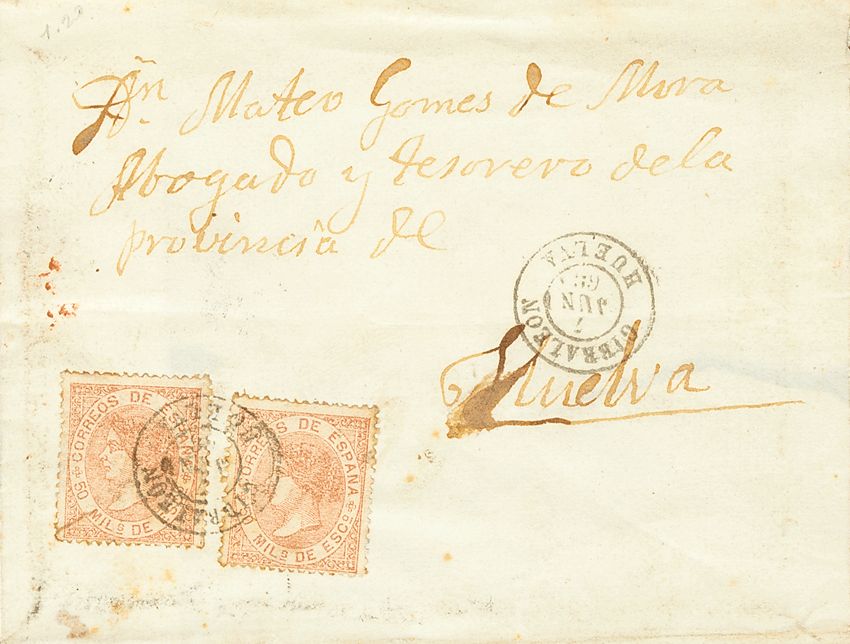 1.20
Dn. Mateo Gomes de Mora
Abogado y tesorero dela
provincia de
Huelva
GIBRALEON
7
JUN
69
HUELVA
CORREOS DE ESPAÑA
50 MILS DE
CORREOS DE ESPAÑA
MILS DE ESCO